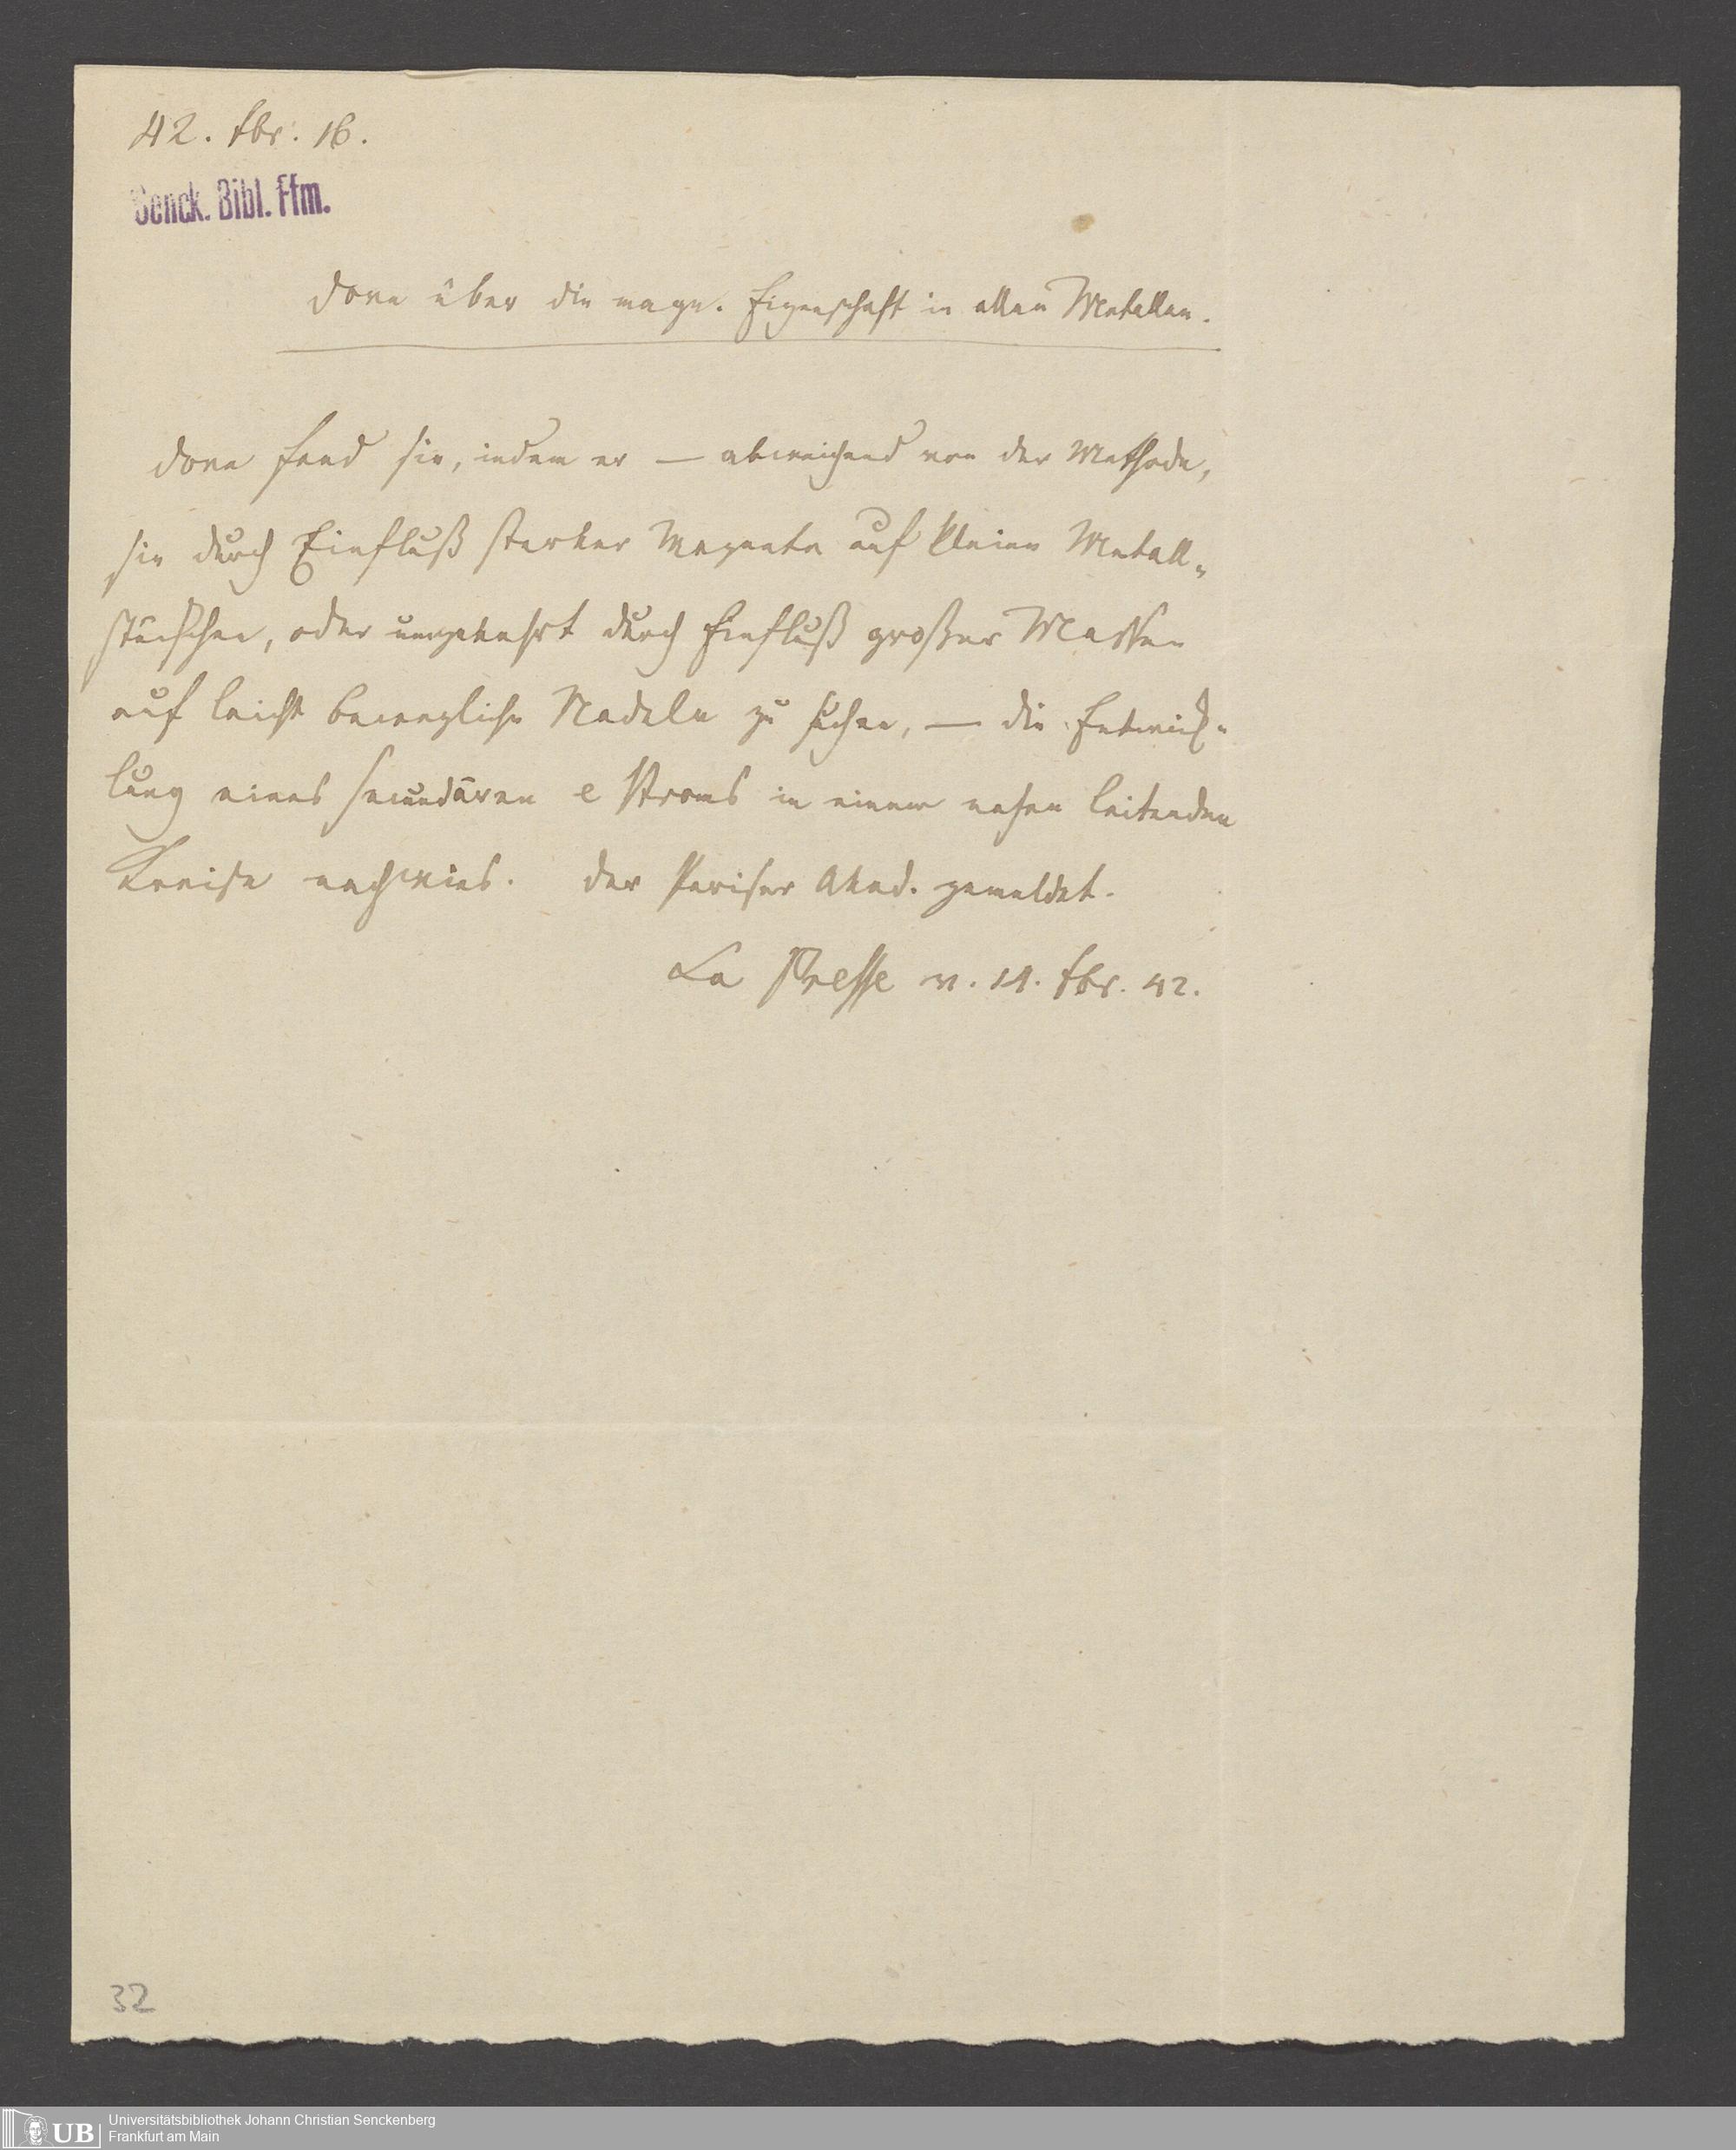 42. fbr. 16.
Senck. Bibl. Ffm.
Dove über die magn. Eigenschaft in allen Metallen.
Dove fand sie, indem er — abweichend von der Methode,
sie durch Einfluß starker Magnete auf kleine Metall-
stückchen, oder umgekehrt durch Einfluß großer Massen
auf leicht bewegliche Nadeln zu suchen, — die Entwick-
lung eines secundären e Stroms in einem nahen leitenden
Kreise nachwies. Der Pariser Akad. gemeldet.
La Presse v. 14. fbr. 42.
32
UB
Universitätsbibliothek Johann Christian Senckenberg
Frankfurt am Main